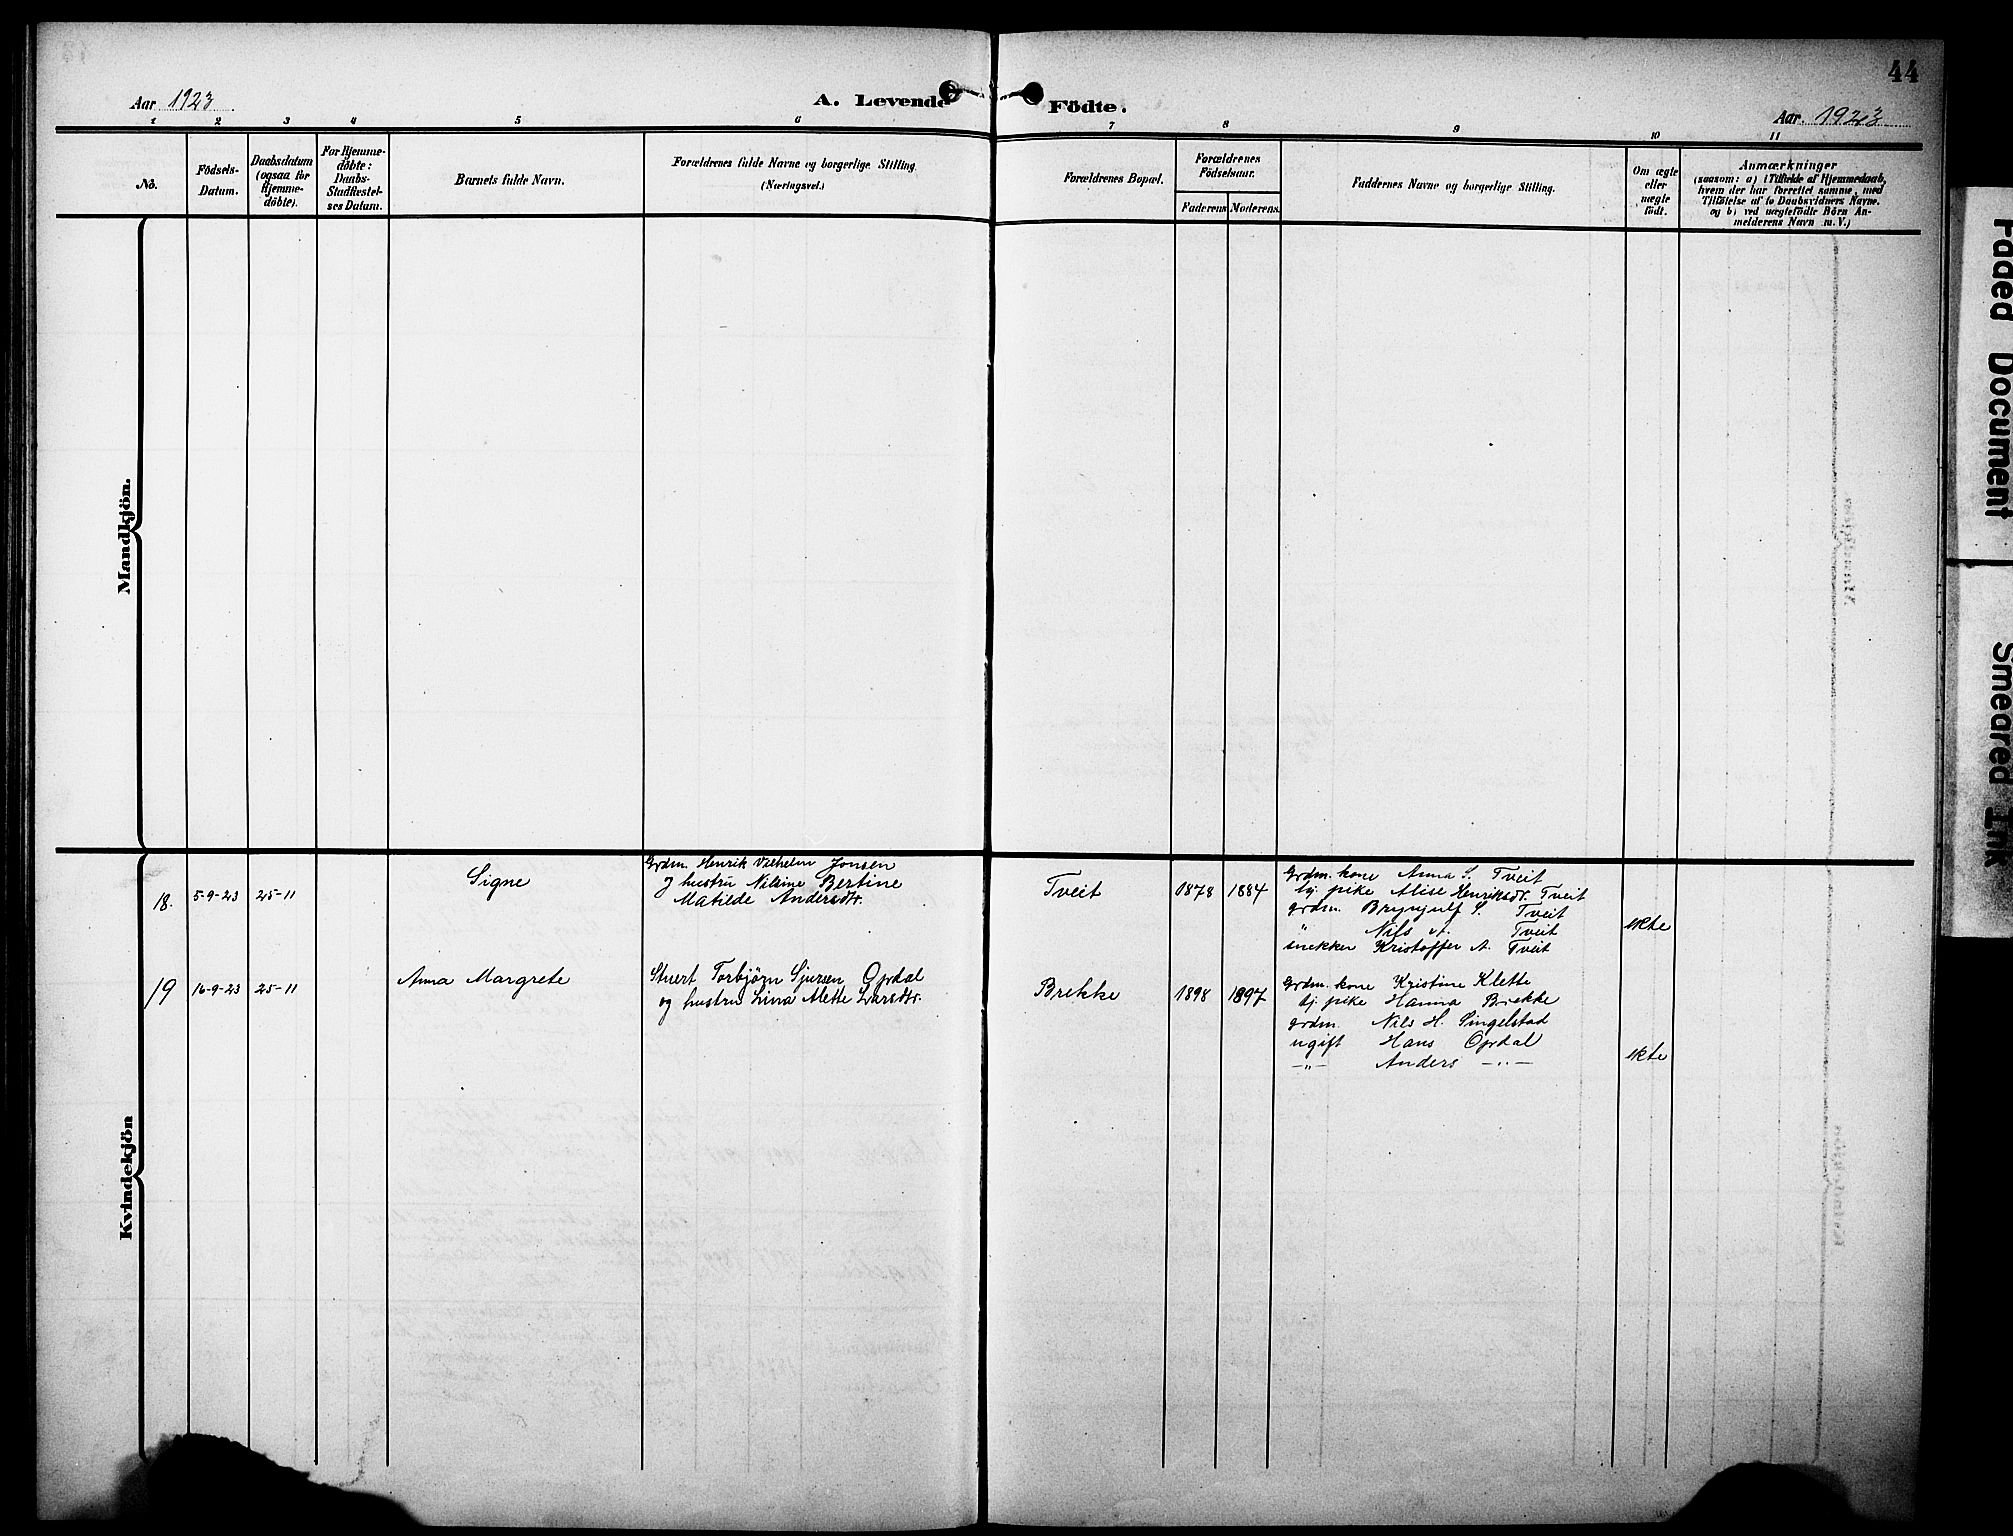 44
Aar 1923
A. Levende Födte.
Aar. 1923
1 2 3 4 5 6 7 8 9 10 11
No.
Födsels-
Datum.
Daabsdatum
(ogsaa for
Hjemme-
döbte).
For Hjemme-
döbte:
Daabs-
Stadfæstel-
ses Datum.
Barnets fulde Navn.
Forældrenes fulde Navne og borgerlige Stilling.
(Næringsvei.)
Forældrenes Bopæl.
Forældrenes
Födselsaar.
Faderens
Moderens.
Faddernes Navne og borgerlige Stilling.
Om ægte
eller
uægte
födt.
Anmærkninger
(saasom: a) i Tilfælde af Hjemmedaab,
hvem der har forrettet samme, med
Tilföielse af to Daabsvidners Navne.
og b) ved uægtefödte Börn An-
melderens Navn m. V.)
Mandkjön.
Kvindekjön
18. 5-9-23 25-11
Signe
Grdm. Henrik Vilhelm Jonsen
og hustru Nilsine Bertine
Matilde Andersdtr.
Tveit
1878 1884
Grdm. kone Anna S. Tveit
tj. pike Alise Henriksdr. Tveit
grdm. Brynjulf S. Tveit
" Nils A. Tveit
snekker Kristoffer A. Tveit
ekte
19 16-9-23 25-11
Anna Margrete
Stuert Torbjørn Sjursen Opdal
og hustru Lina Mette Larsdtr.
Brekke
1898 1897
Grdm. kone Kristine Klette
tj. pike Hanna Brekke
grdm. Nils H. Singelstad
ugift Hans Opdal
—"— Anders —"—
ekte
Faded Document
Smeared Ink